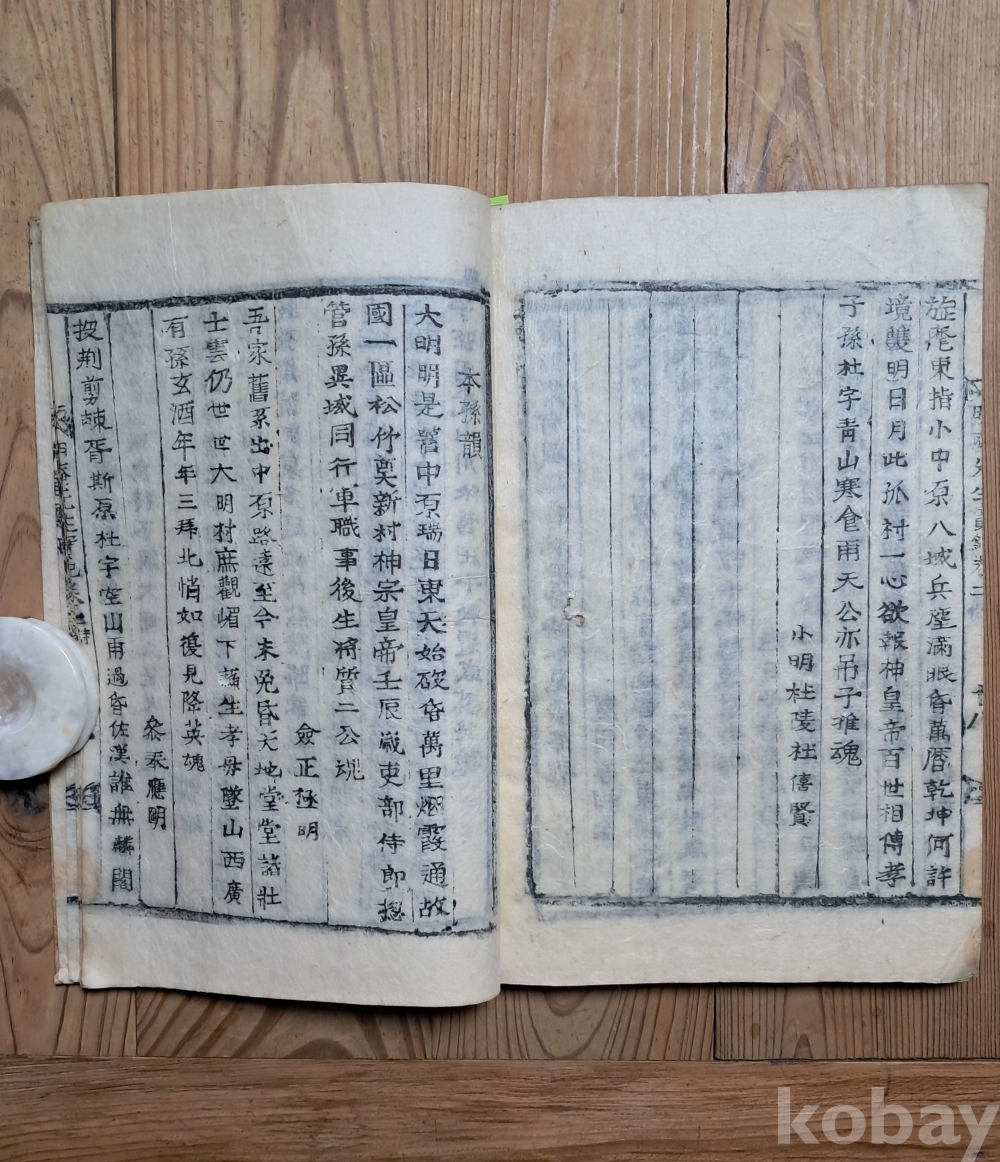 旋麾東指小中原八域兵塵滿眼昏萬曆乾坤何許
境雙明日月此孤村一心欲報神皇帝百世相傳孝
子孫杜宇靑山寒食雨天公亦吊子推魂
小明杜陵杜僖賢
本孫韻
大明明是舊中原瑞日東天始破昏萬里烟霞通故
國一區松竹奠新村神宗皇帝壬辰歲吏部侍郎摠
管孫異域同行軍職事後生將質二公魂
僉正 明
吾家舊系出中原路遠至今未免昏天地堂堂諸壯
士雲仍世世大明村庶觀嵋下 生孝母墜山西廣
有孫玄酒年年三拜北悄如復見降英魂
參奉應明
披荆剪棘胥斯原杜宇空山雨過昏佐漢誰無麟閣
kobay